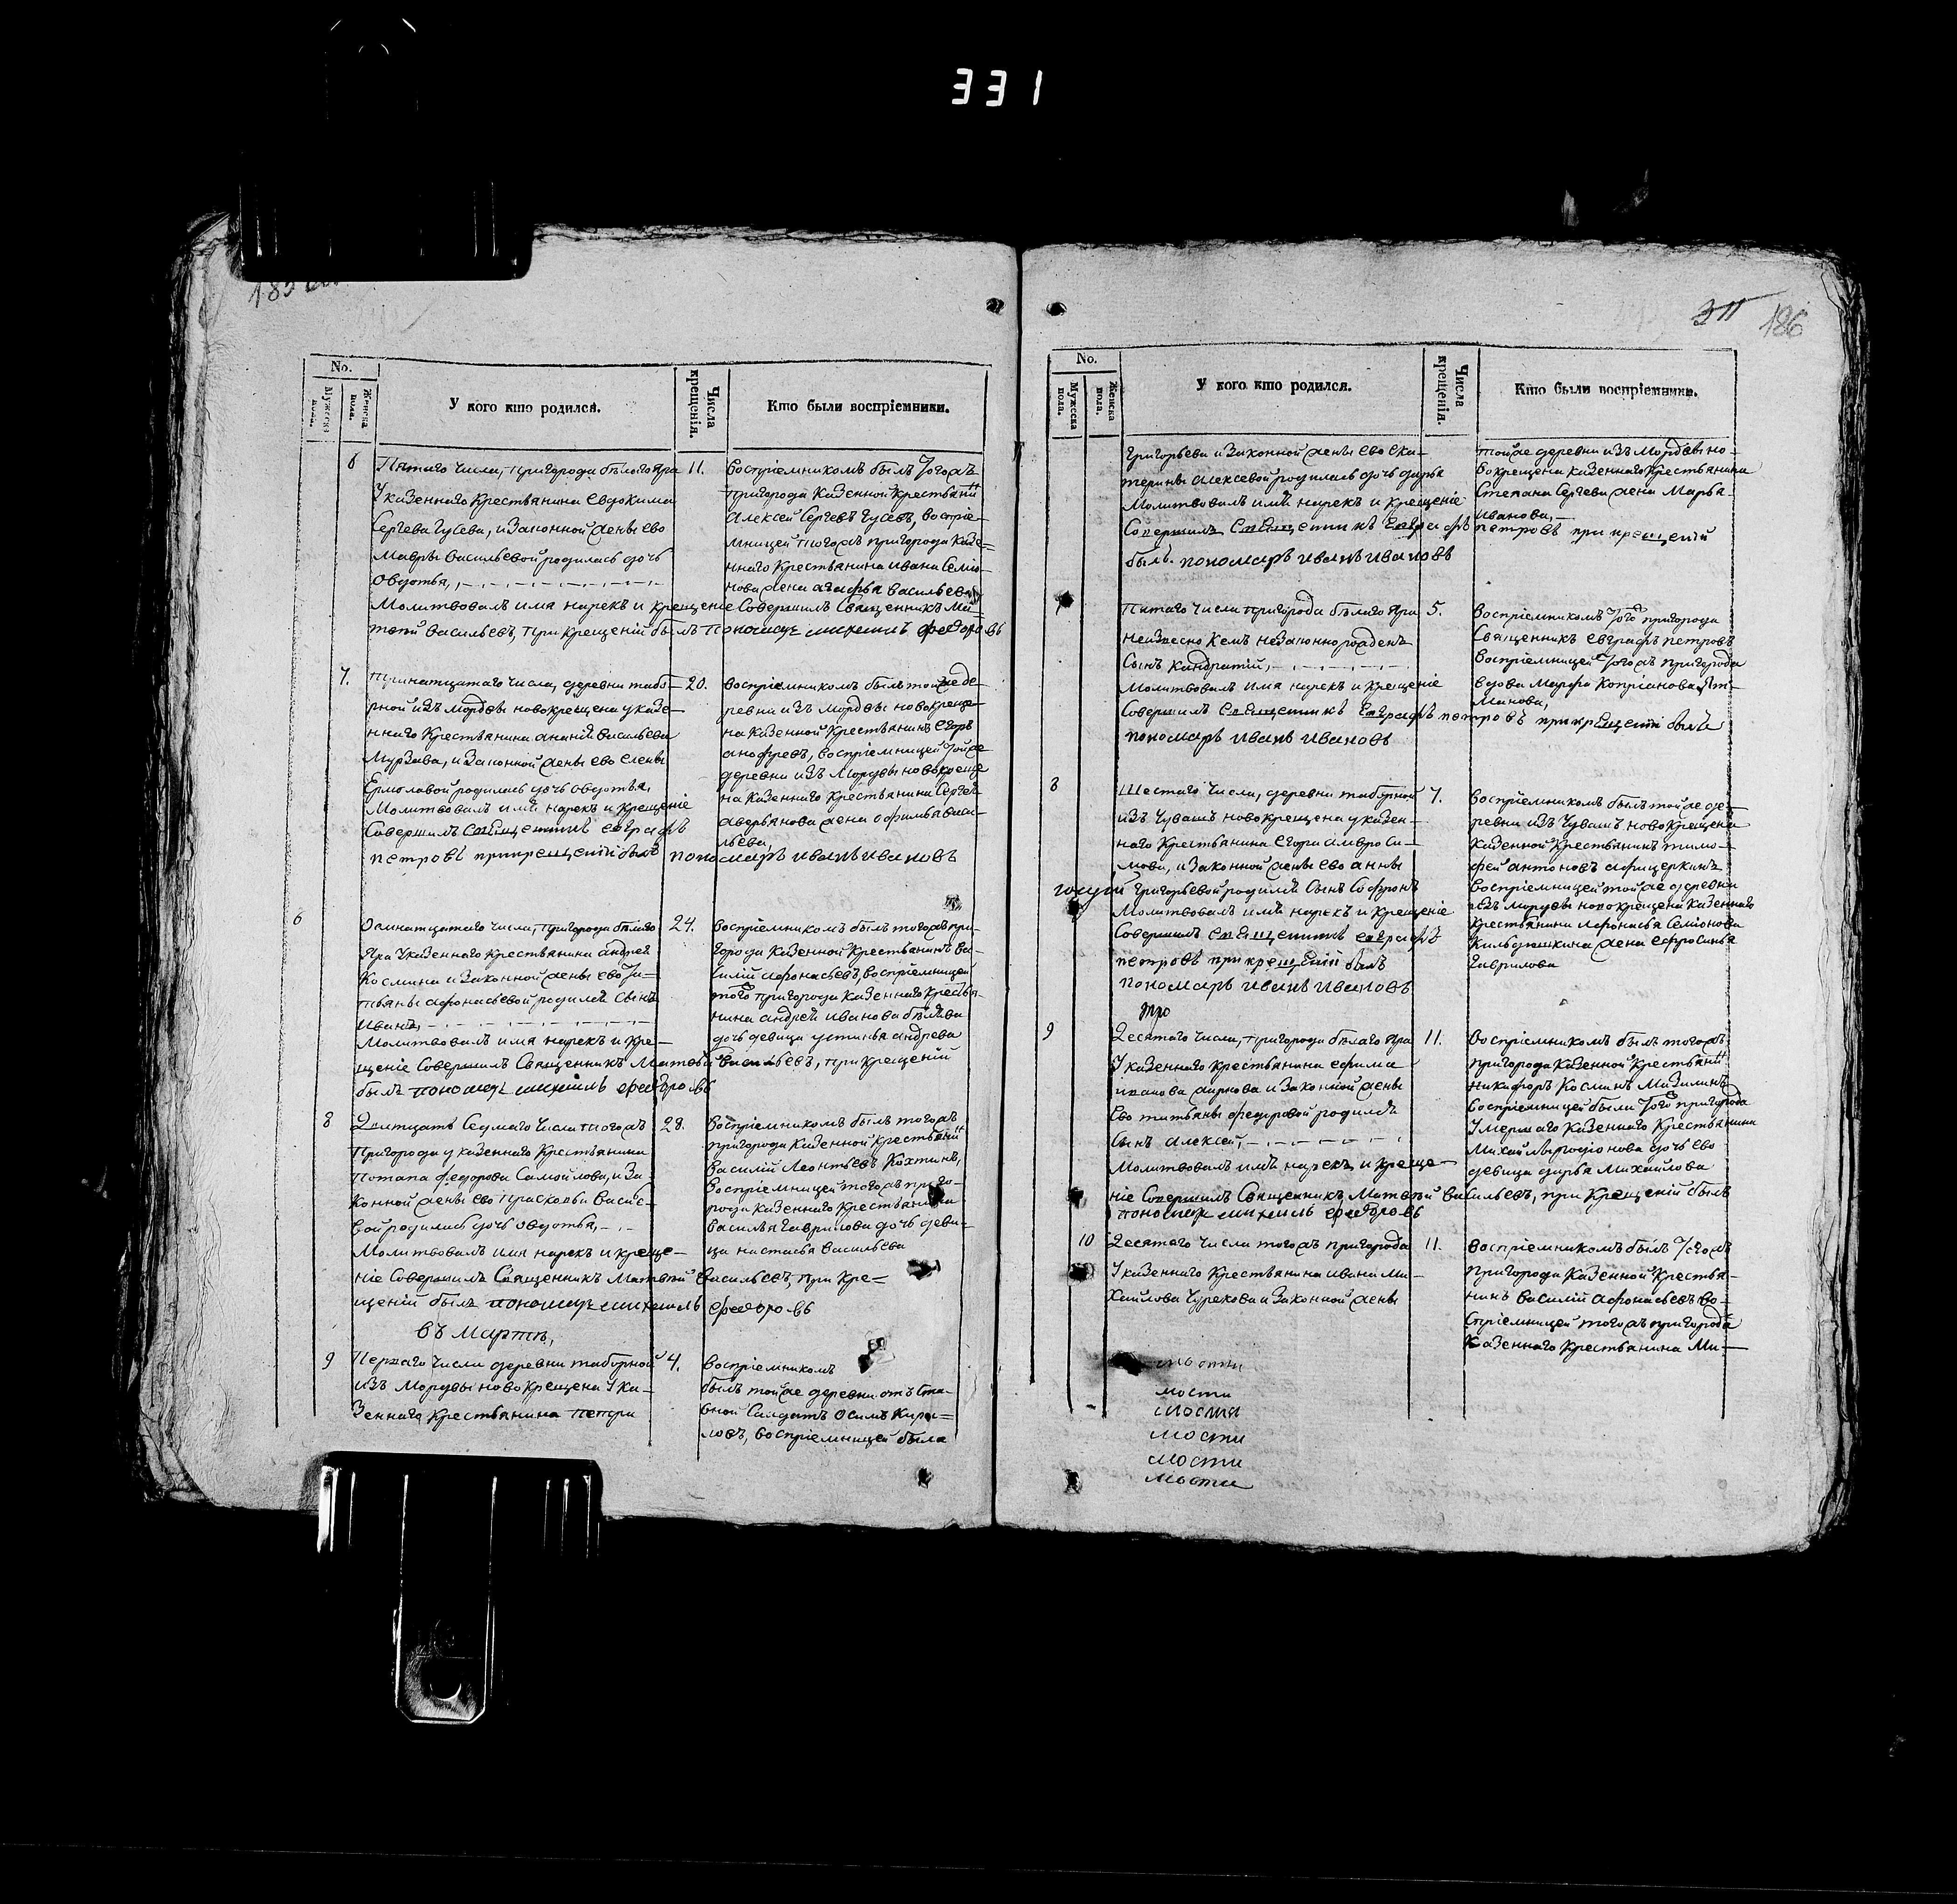 331
No.
Мужеска пола.
Женска пола.
У кого кто родился.
Числа крещенія.
Кто были воспріемники.
6
Пятаго числа, пригорода бѣлого Яра
У казеннаго крестьянина Евдокима
Сергѣева Гусева, и законной жены ево
Мавры Васильевой родилась дочь
Овдотья,
Молитвовалъ имя нарекъ и крещение Совершилъ Священникъ Ма-
тѳей Васильевъ, при крещеній былъ пономарь михаилъ федоровъ
11.
Воспріемникомъ былъ тогожъ
пригорода Казенной крестьянинъ
Алексей Сергѣевъ Гусевъ, воспріе-
мницей тогожъ пригорода казе-
ннаго крестьянина Ивана Семіо-
нова жена агафья васильева
7.
Тринатцатаго числа, деревни табо-
рной изъ мордвы новокрещена у казе-
ннаго Крестьянина ананіи васильева
Мурзава, и законной жены ево елены
Ермолавой родилась дочь Овдотья,
Молитвовалъ имя нарекъ и крещеніе
Совершилъ Священникъ евграфъ
петровъ прикрещеніи былъ пономарь иванъ ивановъ
20.
воспріемникомъ былъ той же де-
ревни изъ мордвы новокреще-
на казенной крестьянинъ егоръ
анофревъ, воспріемницей той же
деревни изъ Мордвы новокреще
на казеннаго крестьянина Сергея
аверьянова жена офимья васи-
льева,
6
Осмнатцатаго числа, пригорода бѣлаго
Яра У казеннаго крестьянина андрея
Космина и законной жены ево Та-
тьяны афонасьевой родился сынъ
иванъ,
Молитвовалъ имя нарекъ и кре-
щеніе Совершилъ Священникъ Матѳей Васильевъ, при крещеній
былъ пономарь михаилъ федоровъ
24.
воспріемникомъ былъ тогожъ при-
города казенной крестьянинъ ва-
силій афонасьевъ, воспріемницей
того пригорода казеннаго крестья-
нина андрея иванова
дочь девица устинья андрева
8
Дватцать Седмаго числа тогожъ
Пригорода у казеннаго крестьянина
Потапа федорова Самойлова, и за
конной жены ево прасковьи василе-
вой родилась дочь овдотья,
Молитвовалъ имя нарекъ и креще-
ніе Совершилъ Священникъ Матвей Васильевъ, при кре=
щеній былъ пономарь михаилъ федоровъ
28.
Воспріемникомъ былъ тогожъ
пригорода казенной крестьянинъ
василій Леонтьевъ Кохтинъ,
воспріемницей тогожъ приго-
рода казеннаго крестьянина
василья гаврилова дочь деви-
ца настасья васильева
въ Мартѣ,
9
Перваго числа деревни таборной
изъ Мордвы новокрещена У ка-
зеннаго крестьянина петра
4.
воспріемникомъ
былъ той же деревни отъ Ста-
вной Салдатъ Осипъ Кири=
ловъ, воспріемницей была
311 186
No.
Мужеска пола.
Женска пола.
У кого кто родился.
Числа крещенія.
Кто были воспріемники.
Григорьева и законной жены ево ека-
терины алексевой родилась дочь дарья
Молитвовалъ имя нарекъ и крещеніе
Совершилъ Священникъ Евграфъ петровъ при крещеній
былъ пономарь иванъ ивановъ
той же деревни изъ Мордвы но-
вокрещена казеннаго крестьянина
Степана Сергѣева жена Марья
Иванова,
7
Пятаго числа пригорода бѣлаго Яра
неизвесно кемъ незаконно рожденъ
Сынъ кандратій,
Молитвовалъ имя нарекъ и крещеніе
Совершилъ Священникъ Евграфъ петровъ прикрещеніи былъ
пономарь иванъ ивановъ
5.
воспріемникомъ того пригорода
Священникъ евграфъ петровъ
воспріемницей тогожъ пригорода
вдова Марфа
8
Шестаго числа, деревни таборной
изъ Чувашъ новокрещена у казен-
наго крестьянина егора амвроси-
мова, и законной жены ево анны
Григорьевой родился Сынъ Софронъ
Молитвовалъ имя нарекъ и крещеніе
Совершилъ Священникъ евграфъ
петровъ прикрещеніи былъ
пономарь иванъ ивановъ
7.
воспріемникомъ былъ той же де-
ревни изъ Чувашъ новокрещена
казенной крестьянинъ тимо-
фей антоновъ афицеркинъ
воспріемницей той же деревни
изъ мордвы новокрещена казеннаго
крестьянина афонасья Семіонова
Кильдюшкина жена ефросинья
Гаврилова
9
Десятаго числа, пригорода бѣлаго Яра
У казеннаго крестьянина ефима
иванова жиркова и законной жены
ево татьяны федоровой родился
Сынъ алексей,
Молитвовалъ имя нарекъ и креще-
ніе Совершилъ Священникъ Матѳей Васильевъ, при крещеній былъ
пономарь михаилъ федоровъ
11.
Воспріемникомъ былъ тогожъ
пригорода казенной крестьянинъ
никифоръ Косминъ Мазилинъ
воспріемницей были того пригорода
Умершаго казеннаго крестьянина
Михайлы родіонова дочь ево
девица дарья Михайлова
10
Десятаго числа тогожъ пригорода
У казеннаго крестьянина ивана Ми-
хаилова Чурекова и законной жены
11.
воспріемникомъ былъ тогожъ
пригорода казенной крестья-
нинъ василій афонасьевъ во-
спріемницей тогожъ пригорода
казеннаго крестьянина Ми-
мости
мости
мости
мости
мости
мости